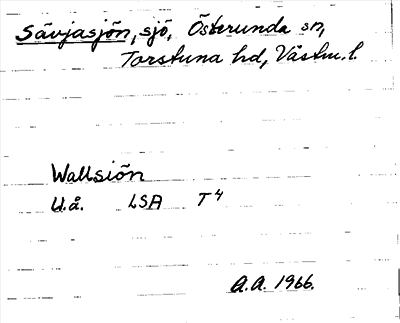 Sävjasjön, sjö, Österunda sn,
Torstuna hd, Västm. l.
Wallsiön
U.å. LSA T4
A.A. 1966.